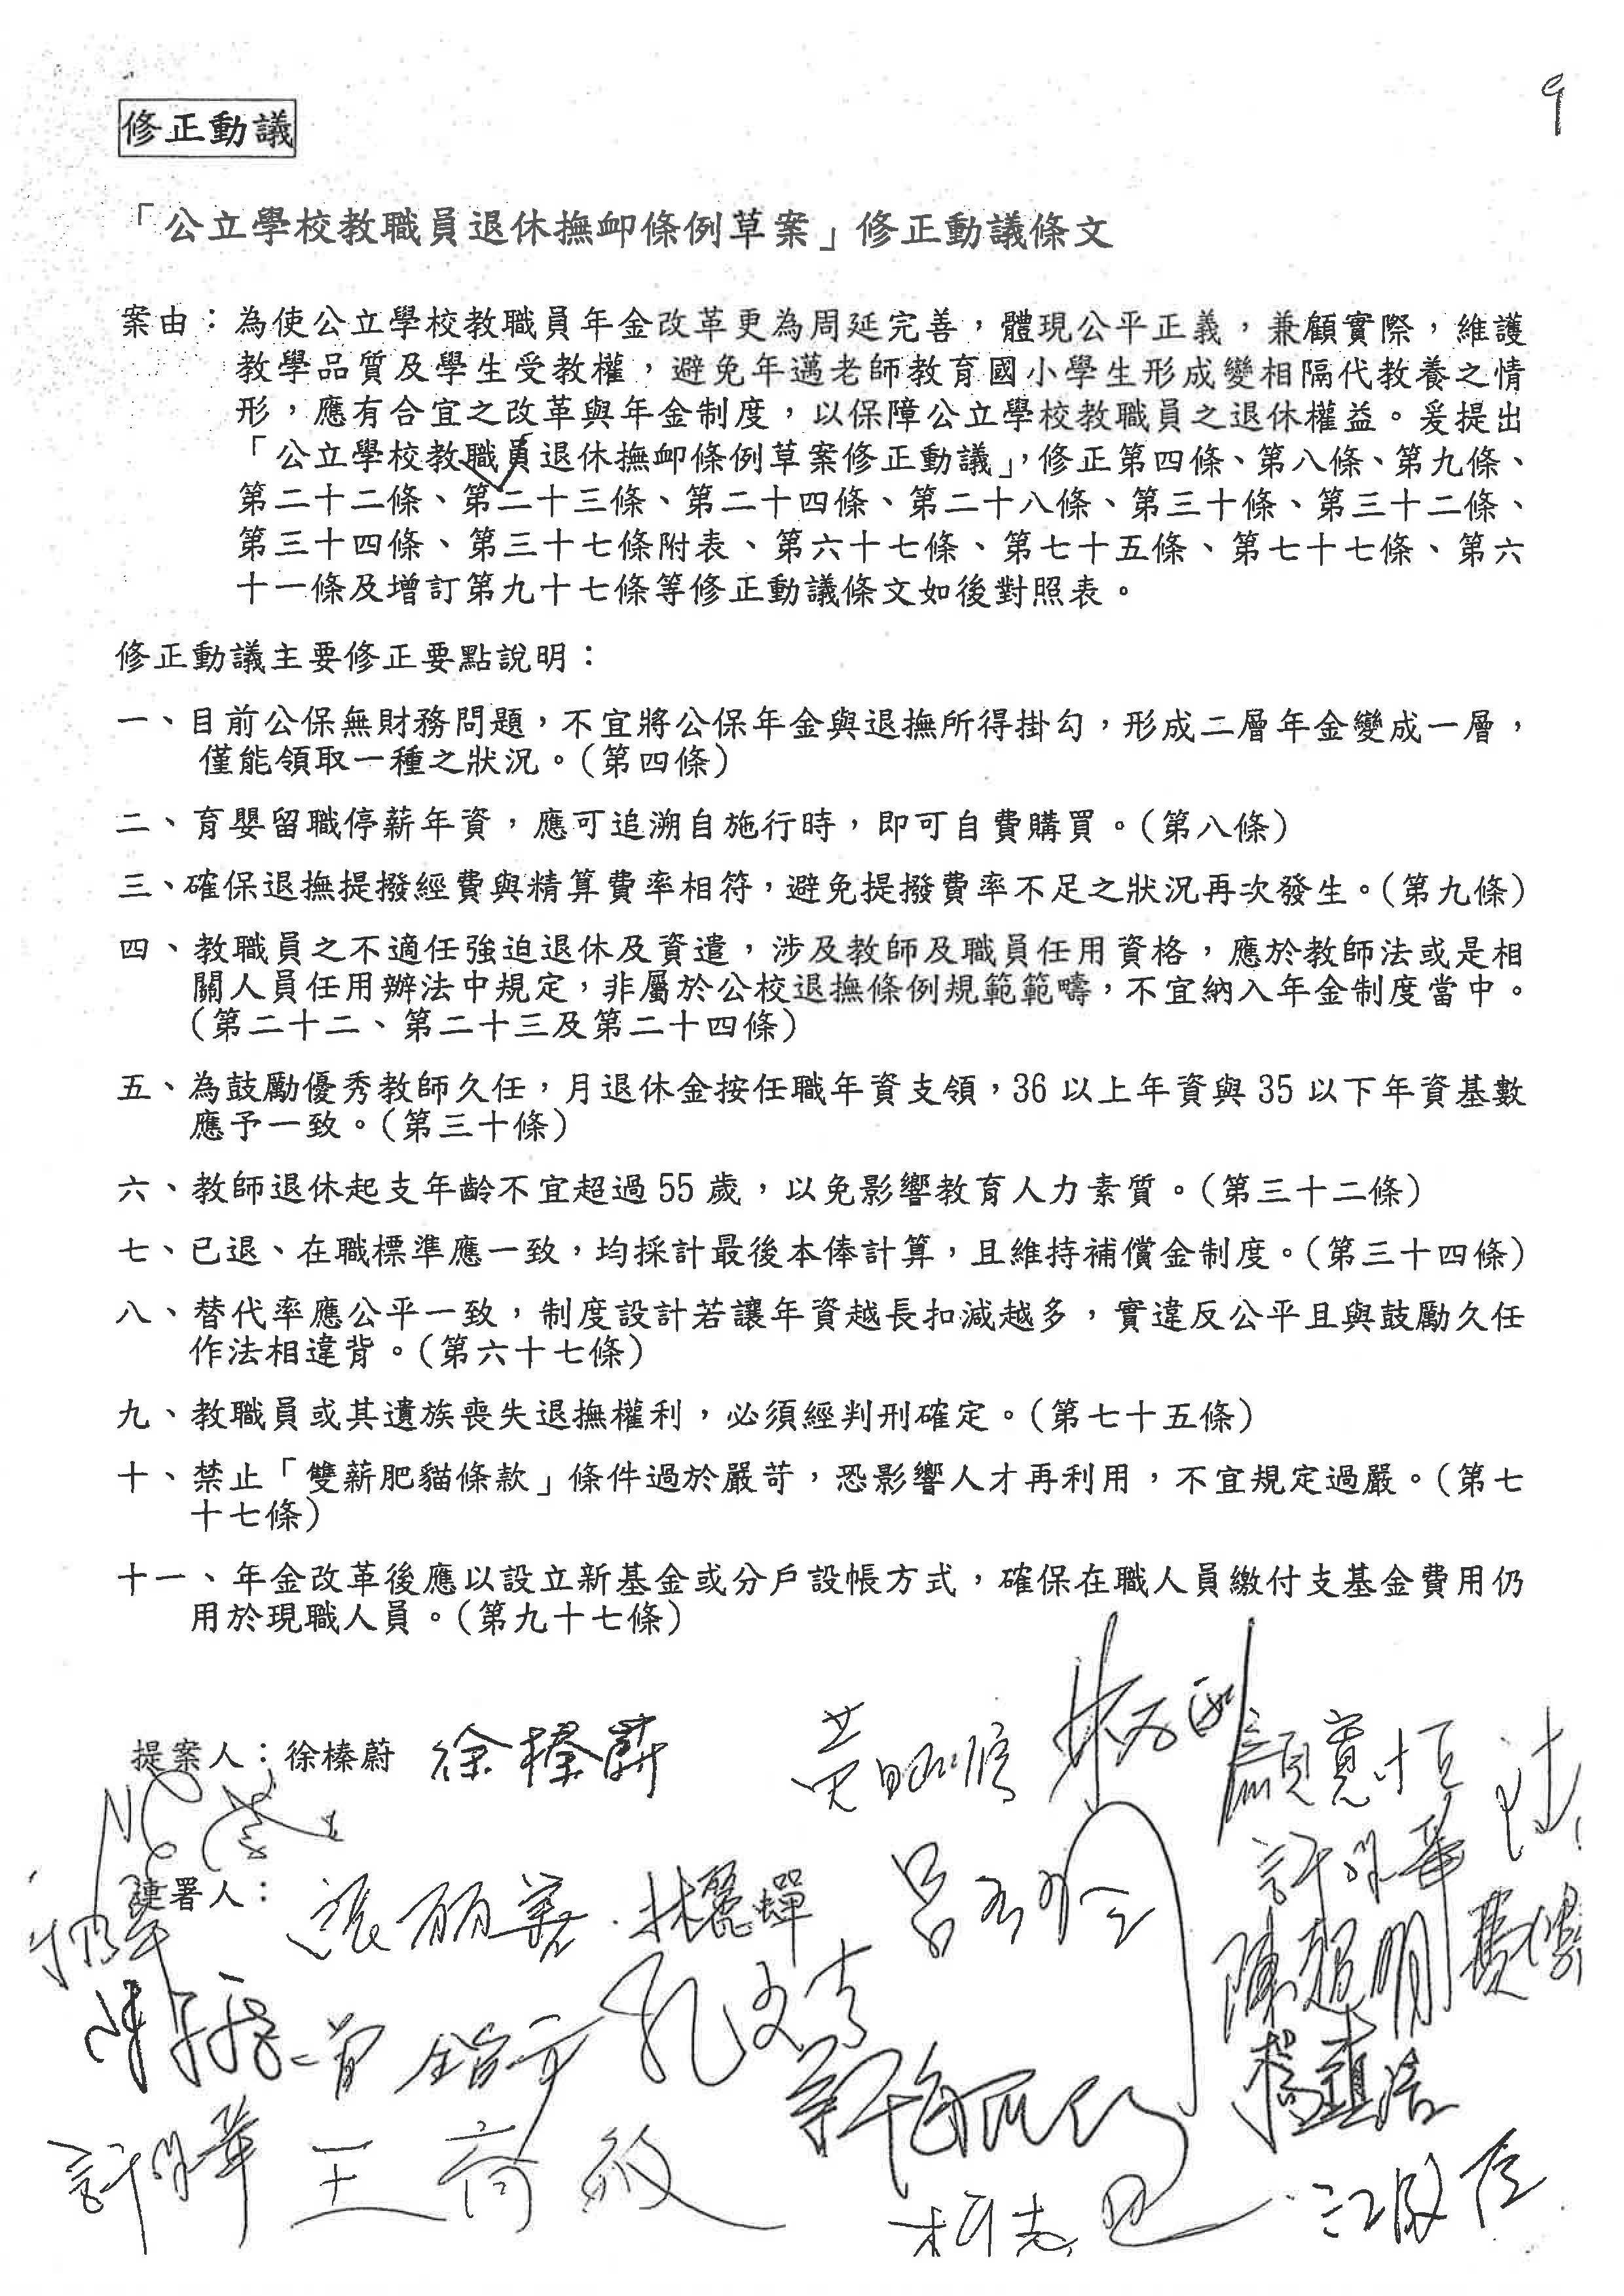 9
修正動議
「公立學校教職員退休撫卹條例草案」修正動議條文
案由：為使公立學校教職員年金改革更為周延完善，體現公平正義，兼顧實際，維護
教學品質及學生受教權，避免年邁老師教育國小學生形成變相隔代教養之情
形，應有合宜之改革與年金制度，以保障公立學校教職員之退休權益。爰提出
「公立學校教職員退休撫卹條例草案修正動議」，修正第四條、第八條、第九條、
第二十二條、第二十三條、第二十四條、第二十八條、第三十條、第三十二條、
第三十四條、第三十七條附表、第六十七條、第七十五條、第七十七條、第六
十一條及增訂第九十七條等修正動議條文如後對照表。
修正動議主要修正要點說明：
一、目前公保無財務問題，不宜將公保年金與退撫所得掛勾，形成二層年金變成一層，
僅能領取一種之狀況。（第四條）
二、育嬰留職停薪年資，應可追溯自施行時，即可自費購買。（第八條）
三、確保退撫提撥經費與精算費率相符，避免提撥費率不足之狀況再次發生。（第九條）
四、教職員之不適任強迫退休及資遣，涉及教師及職員任用資格，應於教師法或是相
關人員任用辦法中規定，非屬於公校退撫條例規範範疇，不宜納入年金制度當中。
（第二十二、第二十三及第二十四條）
五、為鼓勵優秀教師久任，月退休金按任職年資支領，36 以上年資與 35 以下年資基數
應予一致。（第三十條）
六、教師退休起支年齡不宜超過 55 歲，以免影響教育人力素質。（第三十二條）
七、已退、在職標準應一致，均採計最後本俸計算，且維持補償金制度。（第三十四條）
八、替代率應公平一致，制度設計若讓年資越長扣減越多，實違反公平且與鼓勵久任
作法相違背。（第六十七條）
九、教職員或其遺族喪失退撫權利，必須經判刑確定。（第七十五條）
十、禁止「雙薪肥貓條款」條件過於嚴苛，恐影響人才再利用，不宜規定過嚴。（第七
十七條）
十一、年金改革後應以設立新基金或分戶設帳方式，確保在職人員繳付支基金費用仍
用於現職人員。（第九十七條）
提案人：徐榛蔚 徐榛蔚 黃昭順 顏寬恒
連署人： 張麗善 林麗蟬 呂玉玲 許淑華
陳超明 費鴻泰
曾銘宗 孔文吉
楊鎮浯
許淑華 王育敏
柯志恩 江啟臣